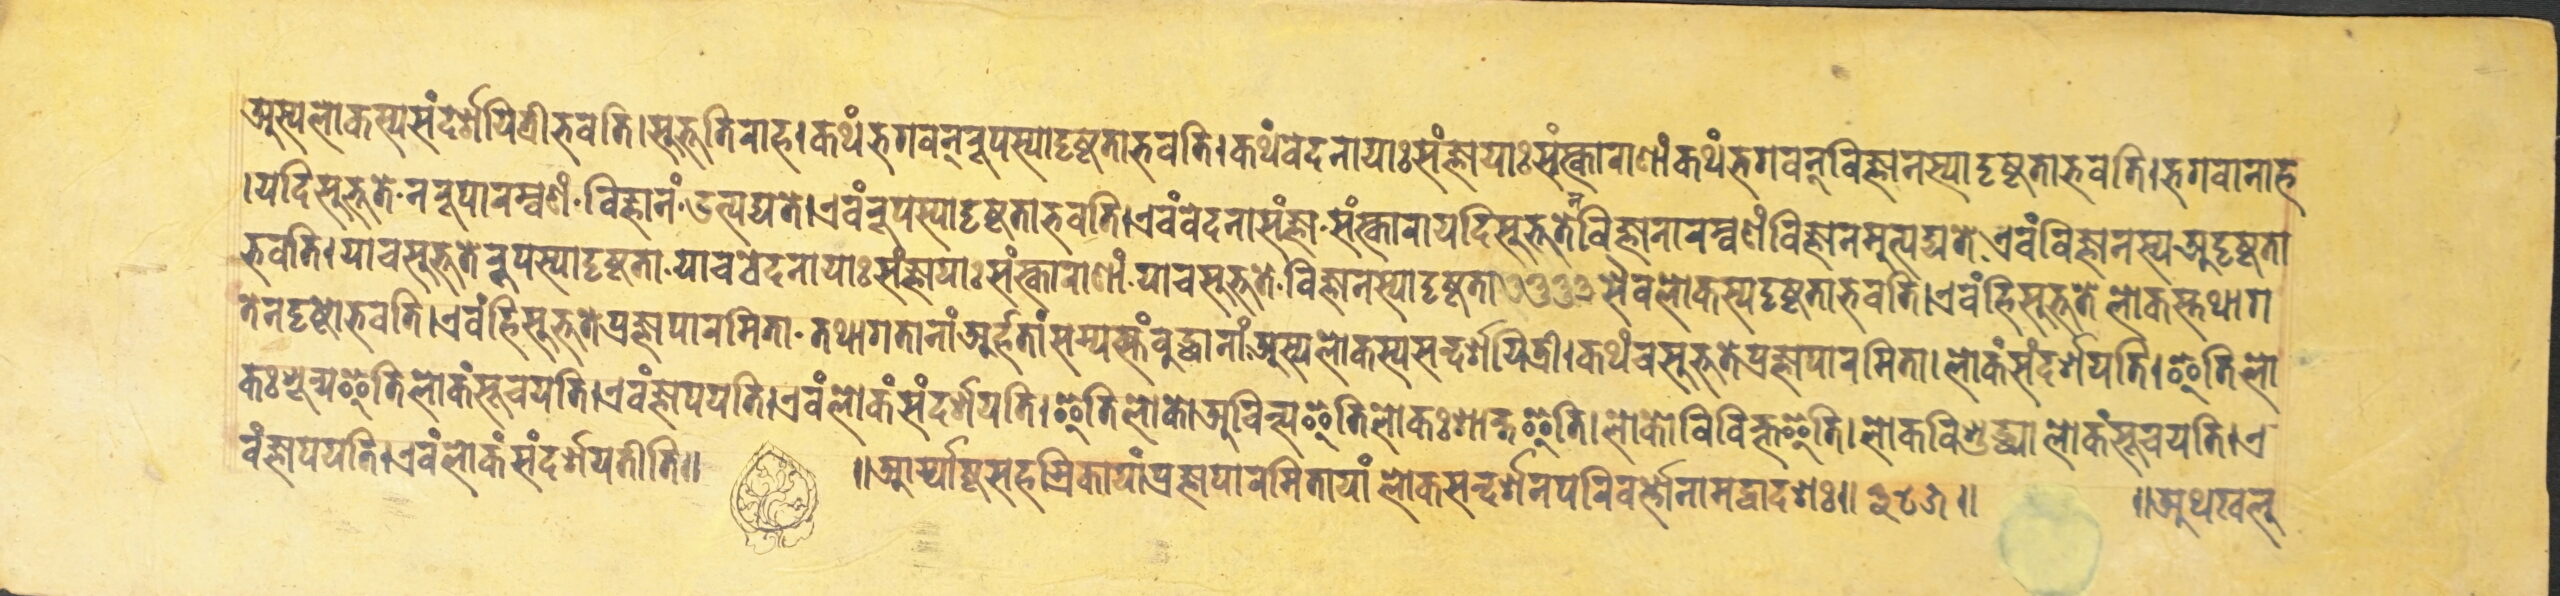 अस्य लोकस्य संदर्शयित्री भवति। सुभूतिराह। कथं भगवन् रूपस्यादृष्टता भवति। कथं वेदनायाः संज्ञायाः संस्काराणां कथं भगवन् विज्ञानस्यादृष्टता भवति। भगवानाह
। यदि सुभूते न रूपारम्वणं विज्ञानं उत्पद्यते। एवं रूपस्यादृष्टता भवति। एवं वेदना संज्ञा संस्कारा यदि सुभूते न विज्ञानारम्वणं विज्ञानमुत्पद्यते एवं विज्ञानस्य अदृष्टता
भवति। या च सुभूते रूपस्यादृष्टता या च वेदनायाः संज्ञायाः संस्काराणां या च सुभूते विज्ञानस्यादृष्टता सैव लोकस्य दृष्टता भवति। एवं हि सुभूते लोकस्तथाग
तेन दृष्टो भवति। एवं हि सुभूते प्रज्ञापारमिता तथागतानां अर्हतां सम्यक्संवुद्धानां अस्य लोकस्य सन्दर्शयित्री। कथं च सुभूते प्रज्ञापारमिता। लोकं संदर्शयति। इति लो
कः शून्य इति लोकं सूचयति। एवं ज्ञापयति। एवं लोकं संदर्शयति। इति लोको अचिन्त्य इति लोकः शान्त इति। लोको विविक्त इति। लोकविशुद्ध्या लोकं सूचयति। ए
वं ज्ञापयति। एवं लोकं संदर्शयतीति॥ ॥ आर्य्याष्टसहस्रिकायां प्रज्ञापारमितायां लोकसन्दर्शनपरिवर्त्तो नाम द्वादशः॥ ॥ ॥ अथ खलु